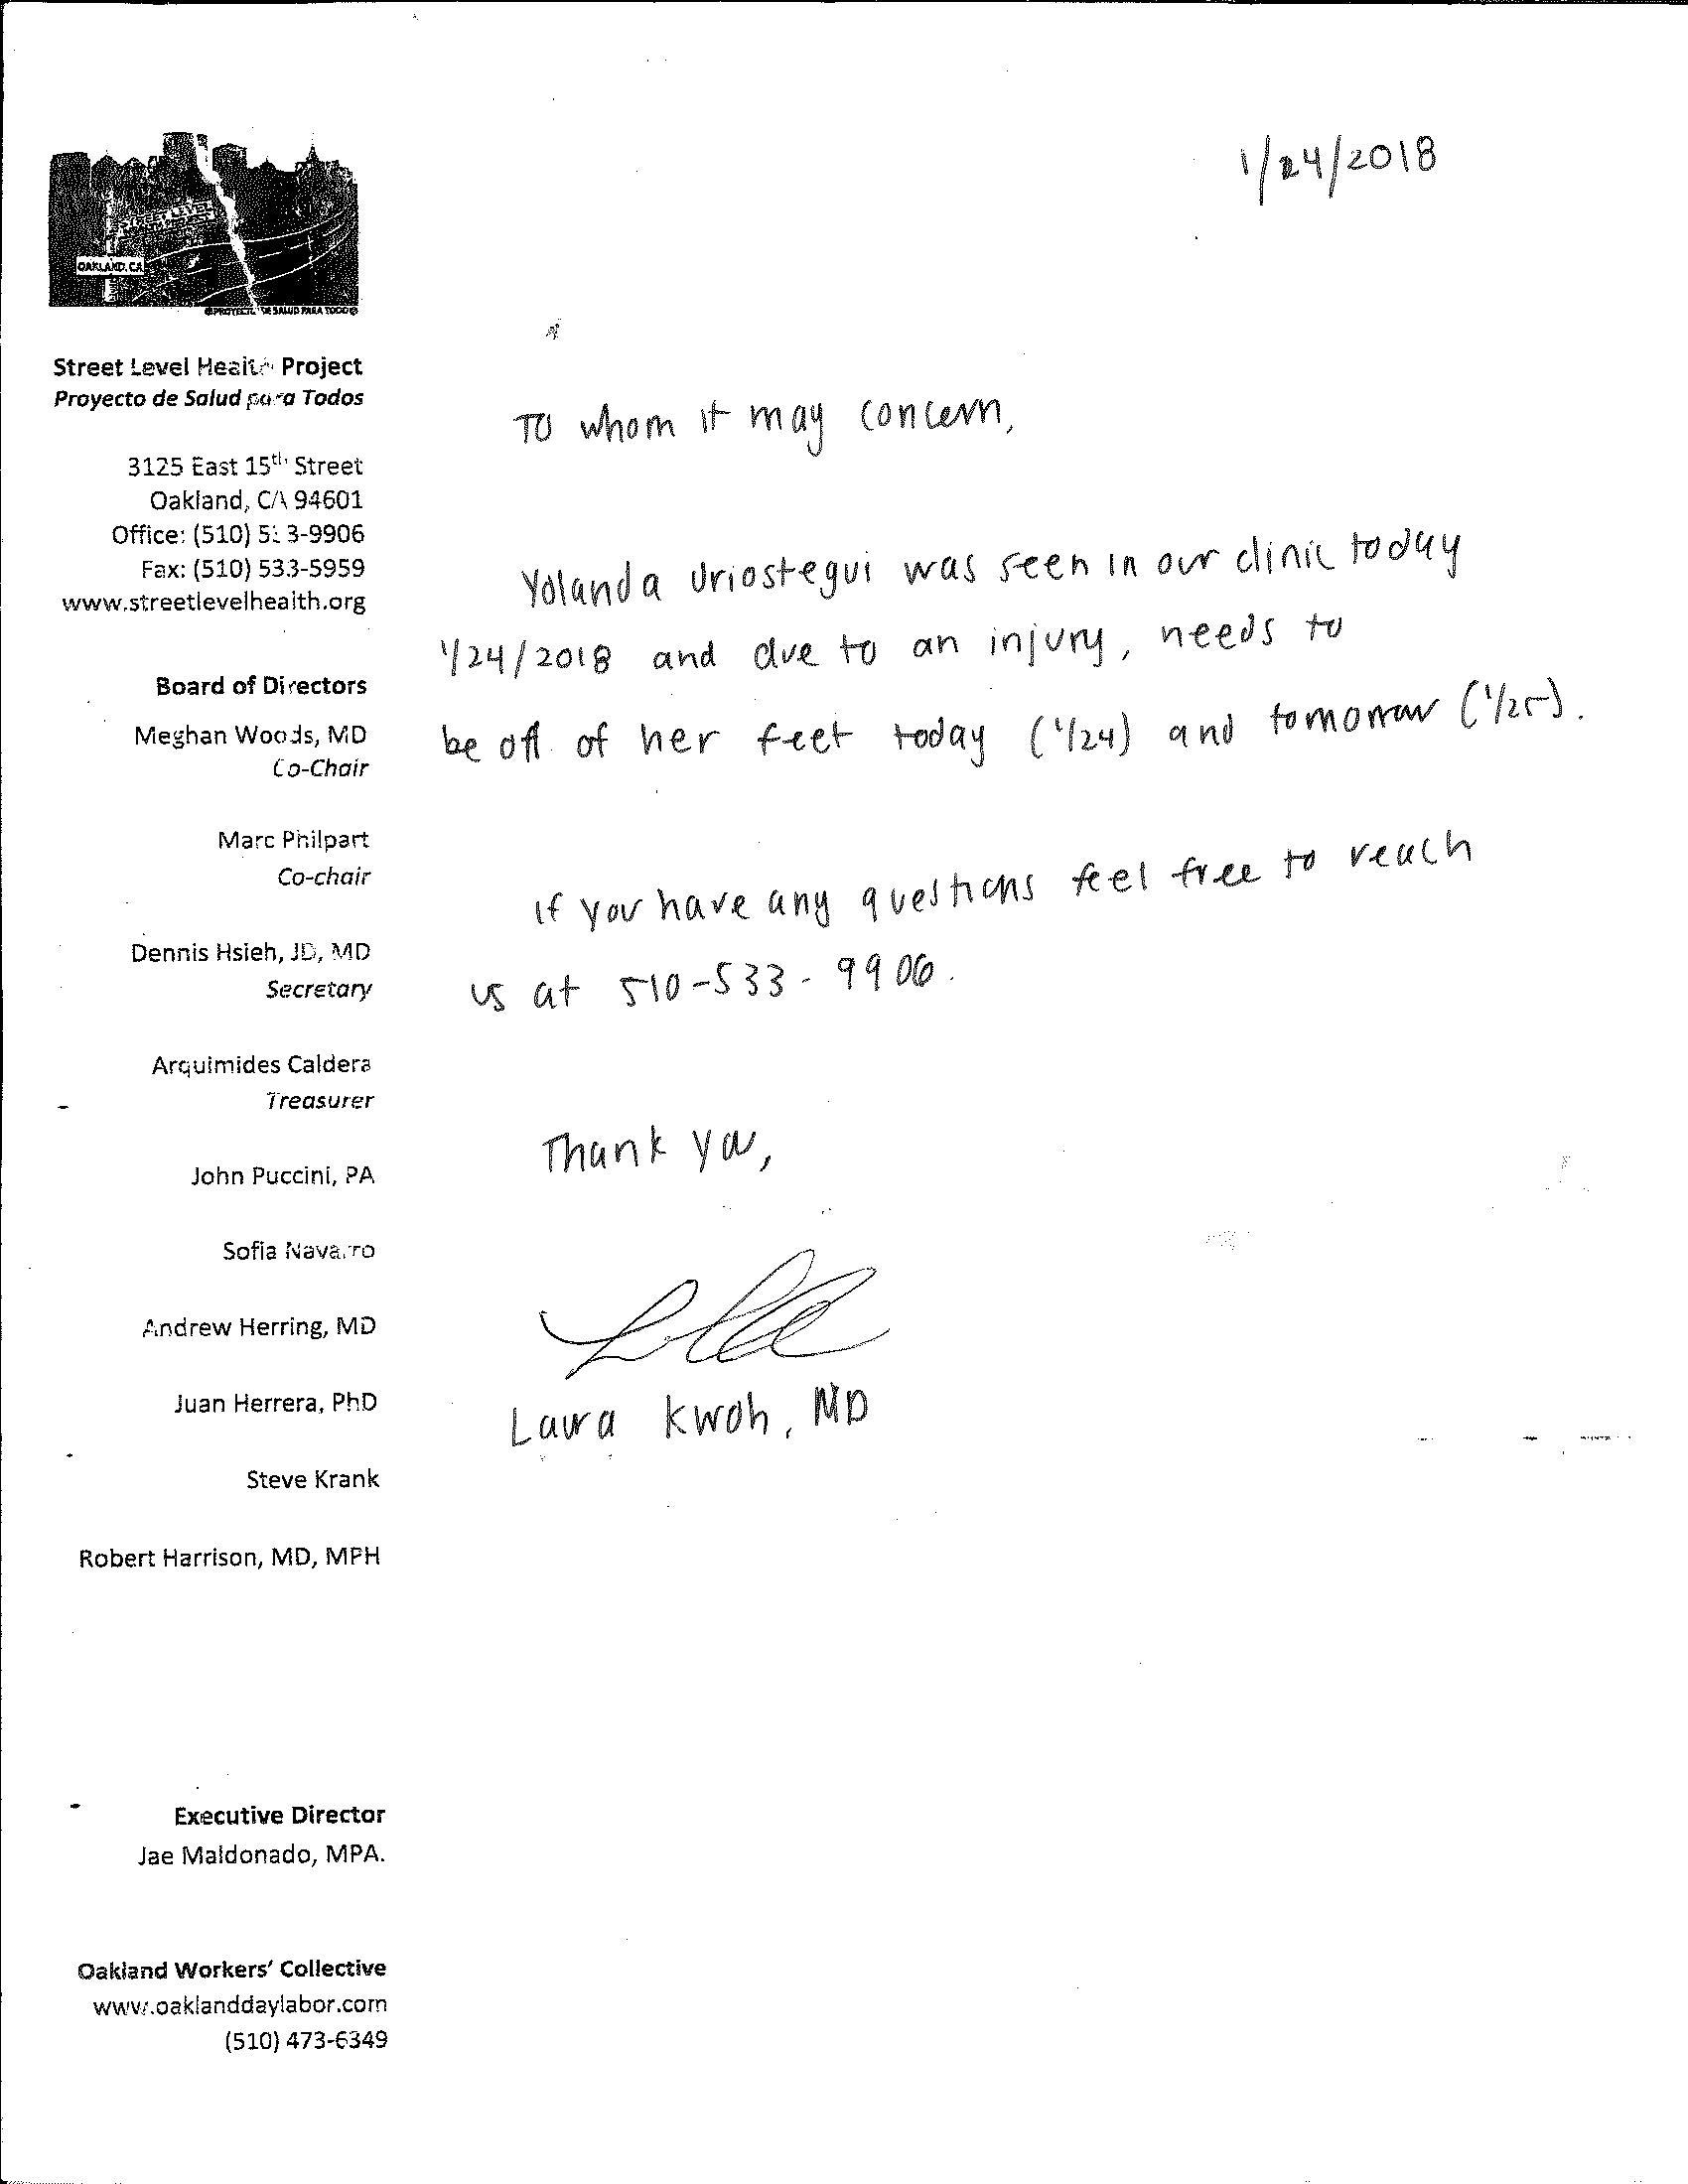 1/24/2018
STREET LEVEL
HEALTH PROJECT
OAKLAND, CA
PROYECTO DE SALUD PARA TODOS
Street Level Health Project
Proyecto de Salud para Todos
3125 East 15th Street
Oakland, CA 94601
Office: (510) 533-9906
Fax: (510) 533-5959
www.streetlevelhealth.org
Board of Directors
Meghan Woods, MD
Co-Chair
Marc Philpart
Co-chair
Dennis Hsieh, JD, MD
Secretary
Arquimides Caldera
Treasurer
John Puccini, PA
Sofia Navarro
Andrew Herring, MD
Juan Herrera, PhD
Steve Krank
Robert Harrison, MD, MPH
Executive Director
Jae Maldonado, MPA.
Oakland Workers' Collective
www.oaklanddaylabor.com
(510) 473-6349
To whom it may concern,
Yolanda Uriostegui was seen in our clinic today
1/24/2018 and due to an injury, needs to
be off of her feet today (1/24) and tomorrow (1/25).
If you have any questions feel free to reach
us at 510-533-9906.
Thank you,
Laura Kwoh, MD